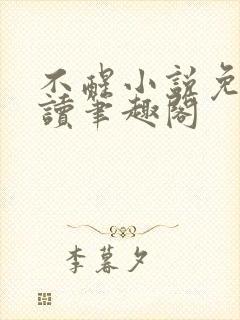 不醒小説免
讀筆趣閣
李暮夕